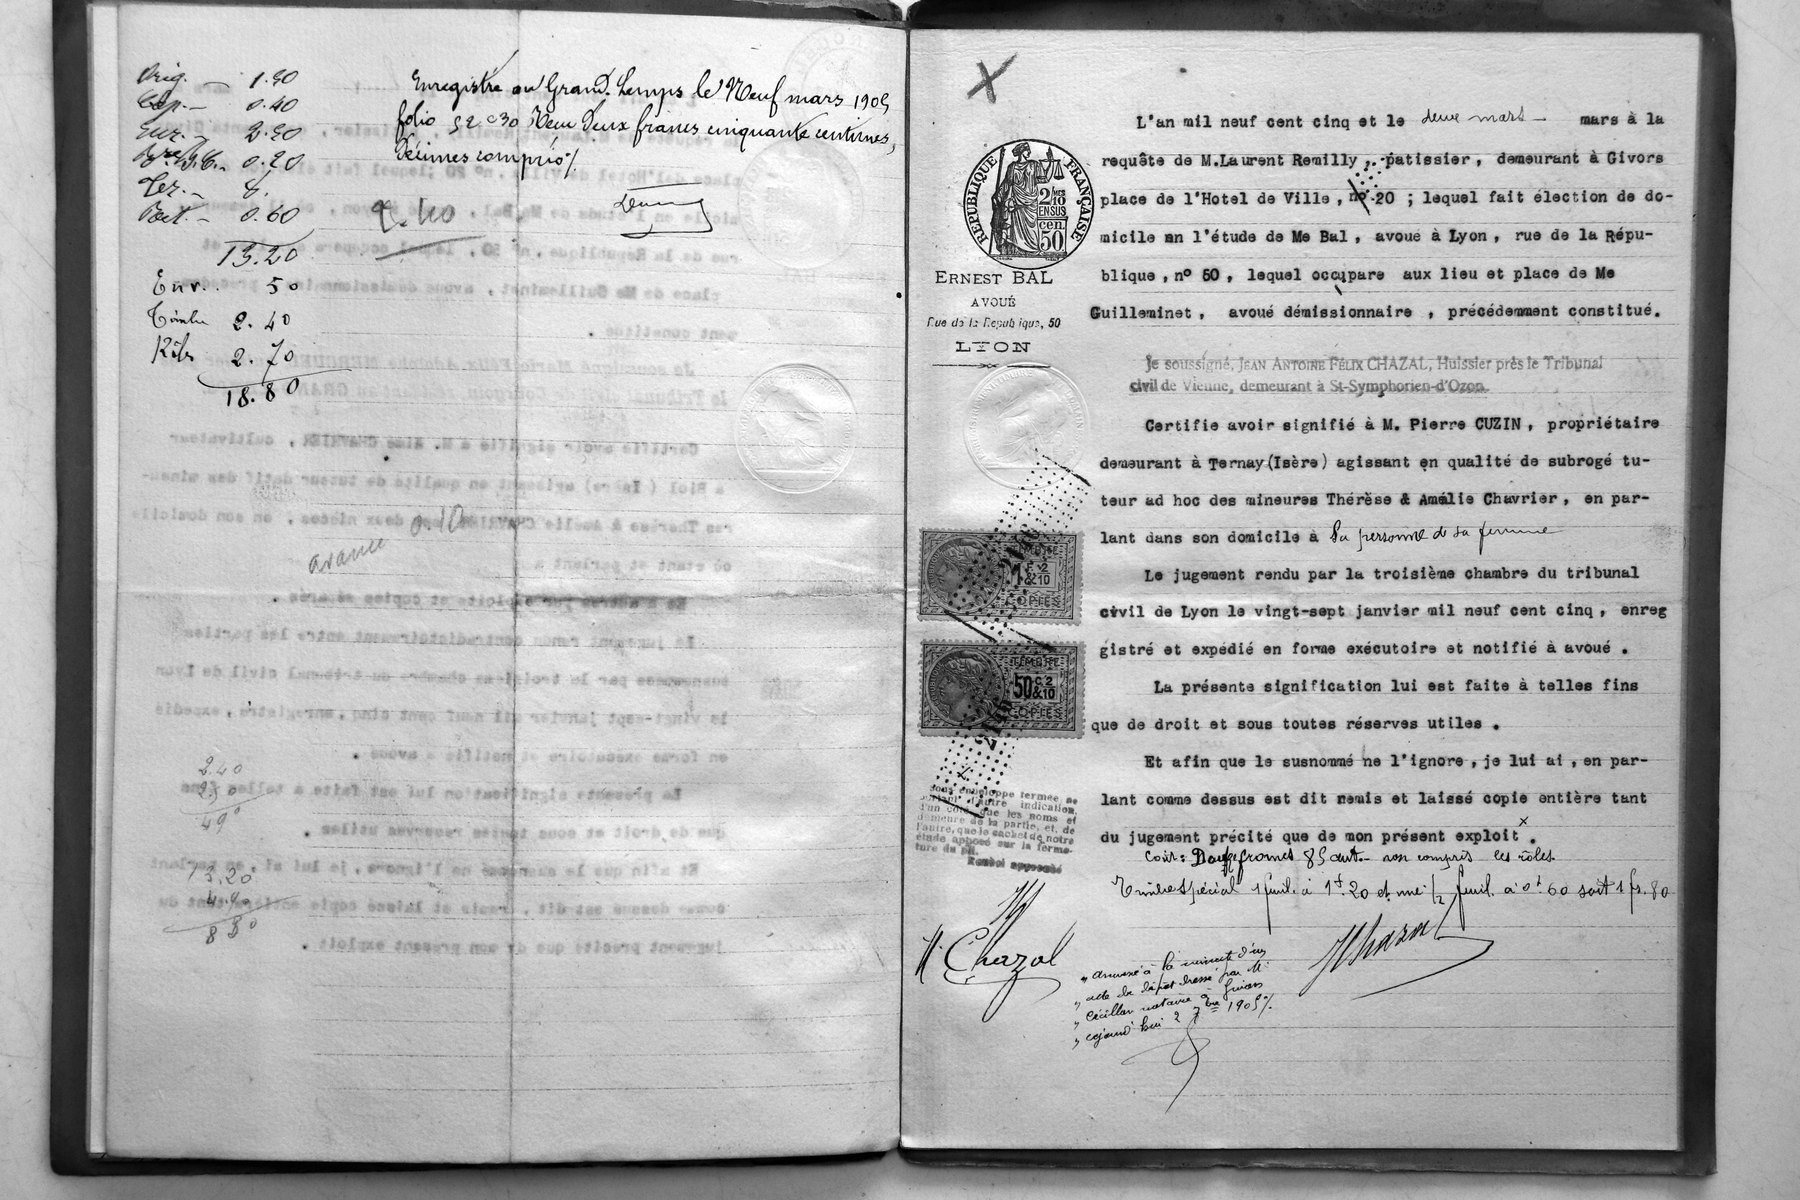 Orig. — 1.90
Cop. — 0.40
Enr. — 2.50
0.20
8.
0.60
13.20
Enr. . 50
Timbre 2.40
Rôles 2.70
18.80
2.40
Enregistré au Grand-Lemps le Neuf mars 1905
folio 52 c 30 Reçu Deux francs cinquante centimes,
Décimes compris %
avance 0.10
2.40
2.50
4 90
13.20
4.90
8 30
L'an mil neuf cent cinq et le deux mars — mars à la
requête de M.Laurent Remilly , patissier, demeurant à Givors
place de l'Hotel de Ville , n° 20 ; lequel fait élection de do-
micile en l'étude de Me Bal , avoué à Lyon , rue de la Répu-
blique , n° 50 , lequel occupare aux lieu et place de Me
Guilleminet , avoué démissionnaire , précédemment constitué.
RÉPUBLIQUE FRANÇAISE
2/10 MES
EN SUS
50 cen.
ERNEST BAL
AVOUÉ
Rue de la République, 50
LYON
Je soussigné, JEAN ANTOINE FÉLIX CHAZAL, Huissier près le Tribunal
civil de Vienne, demeurant à St-Symphorien-d'Ozon.
Certifie avoir signifié à M. Pierre CUZIN , propriétaire
demeurant à Ternay (Isère) agissant en qualité de subrogé tu-
teur ad hoc des mineures Thérèse & Amélie Chavrier , en par-
lant dans son domicile à la personne de sa femme
Le jugement rendu par la troisième chambre du tribunal
civil de Lyon le vingt-sept janvier mil neuf cent cinq , enreg
gistré et expédié en forme exécutoire et notifié à avoué .
La présente signification lui est faite à telles fins
que de droit et sous toutes réserves utiles .
Et afin que le susnommé ne l'ignore , je lui ai , en par-
lant comme dessus est dit remis et laissé copie entière tant
du jugement précité que de mon présent exploit .
1 F. 2
& 10
COPIES
TIMBRE
50 C. 2
& 10
COPIES
sous enveloppe fermée ne
portant d'autre indication,
d'un côté, que les noms et
demeure de la partie, et, de
l'autre, que le cachet de notre
étude apposé sur la ferme-
ture du pli.
Renvoi approuvé
Coût : Douze francs 85 cent. — non compris les rôles.
Timbre spécial 1 feuil. à 1f.20 et une 1/2 feuil. à 0f.60 soit 1 fr. 80
Chazal
Chazal
" annexé à la minute d'un
" acte de dépôt dressé par M.
" notaire à Givors
" cejourd'hui 2 7bre 1905 %